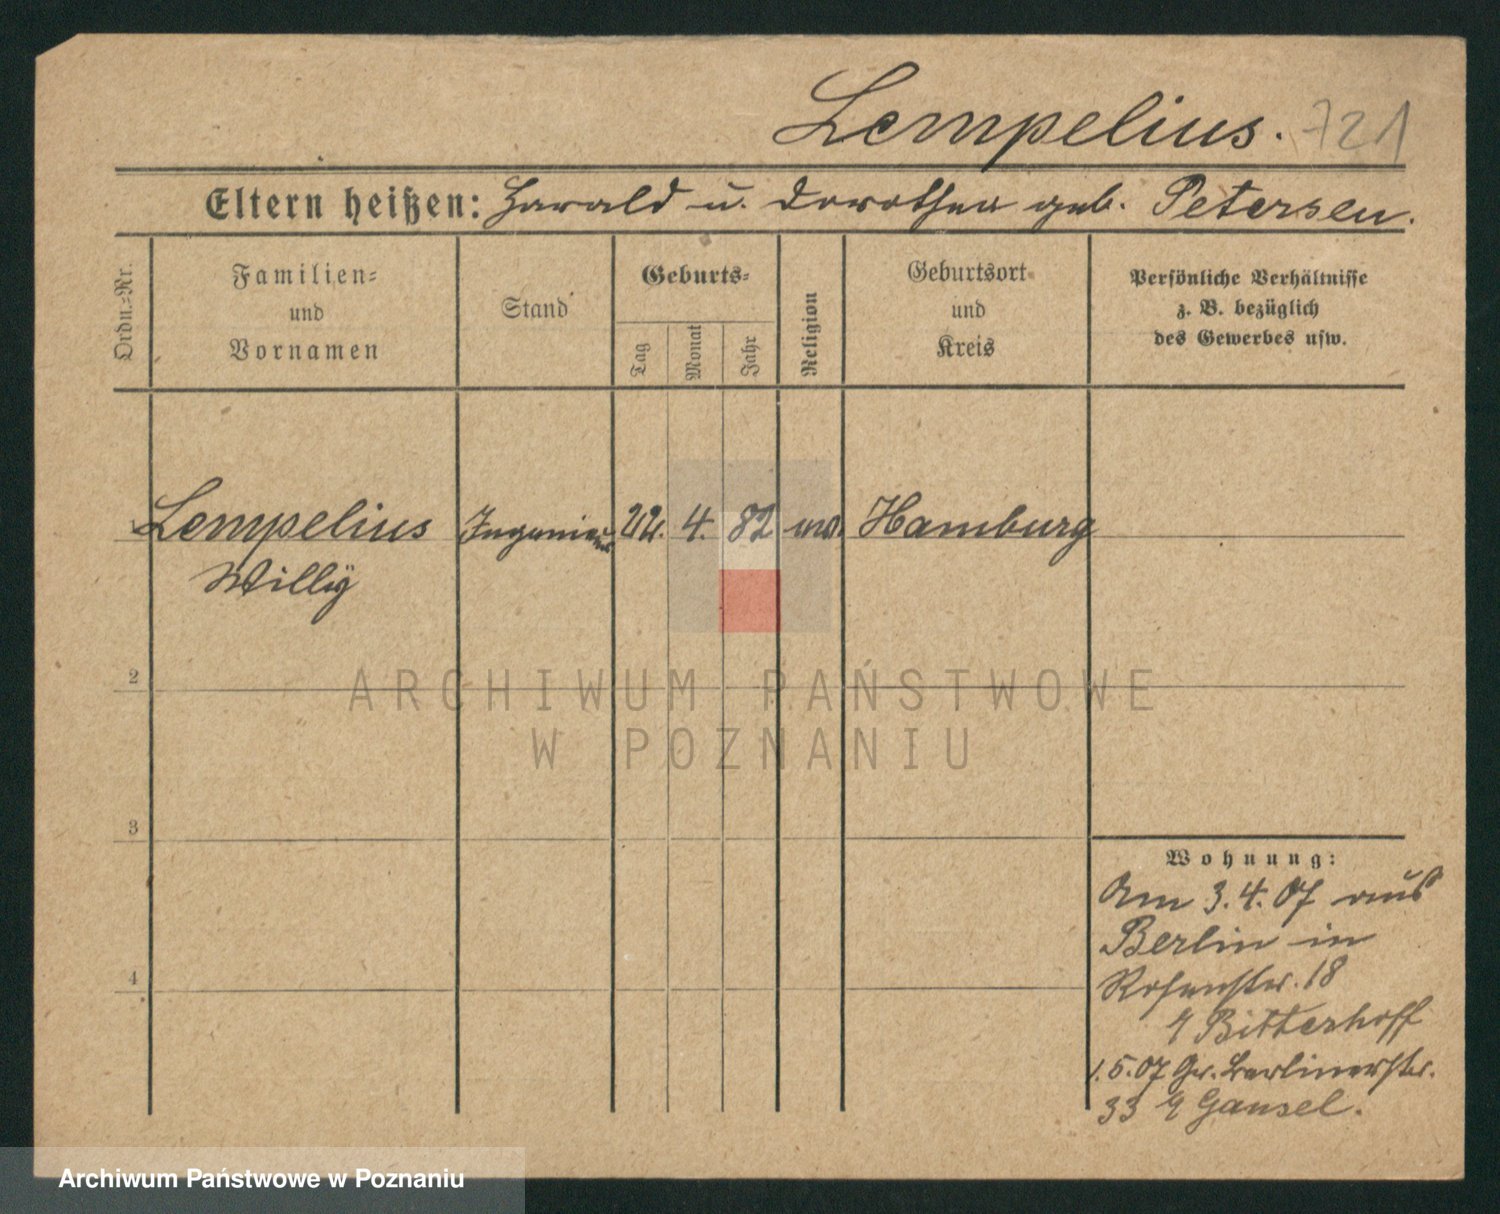 Lempelius. 721
Eltern heißen: Harald u. Dorothea geb. Petersen.
Ordn.=Nr.
Familien=
und
Vornamen
Stand
Geburts=
Tag
Monat
Jahr
Religion
Geburtsort
und
Kreis
Persönliche Verhältnisse
z. B. bezüglich
des Gewerbes usw.
Lempelius Ingenieur 22. 4. 82 Hamburg
Willÿ
2
3
4
Wohnung:
Am 3.4.07 aus
Berlin in
Rosenstr. 18
Bitterhoff
1.5.07 Gr. Berlinerstr.
33 Gansel.
ARCHIWUM PAŃSTWOWE
W POZNANIU
Archiwum Państwowe w Poznaniu